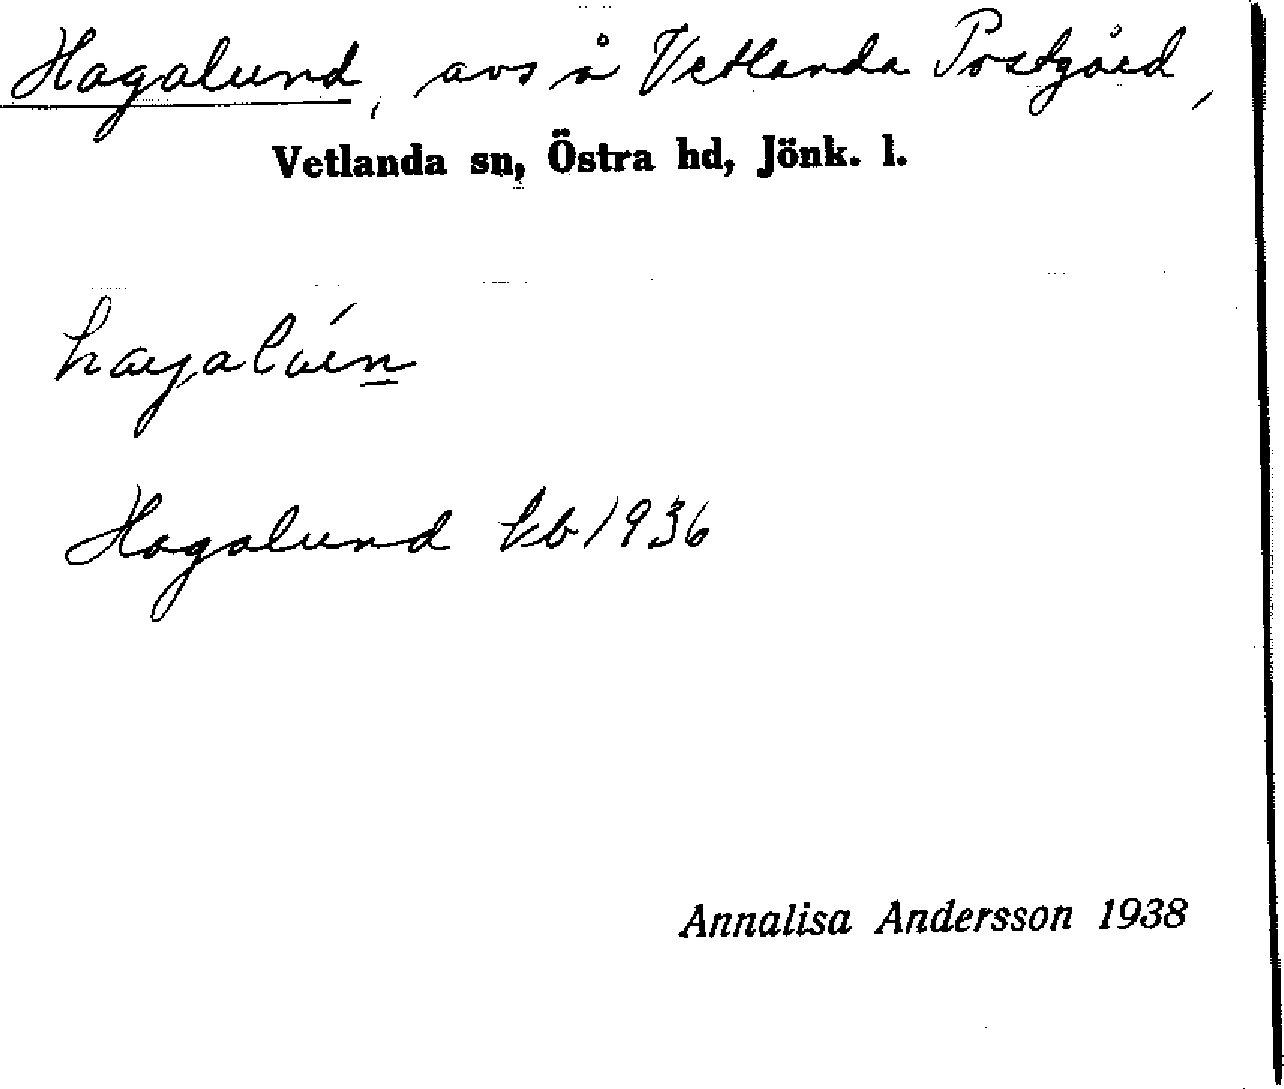 Hagalund, avs å Vetlanda Postgård,
Vetlanda sn, Östra hd, Jönk. l.
Hagalund kb 1936
Annalisa Andersson 1938